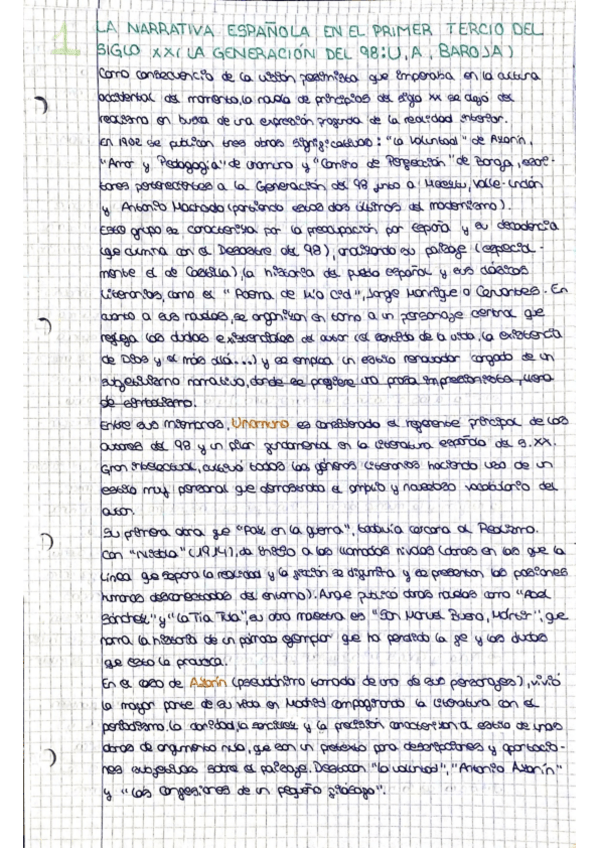 1
LA NARRATIVA ESPAÑOLA EN EL PRIMER TERCIO DEL
SIGLO XX (LA GENERACIÓN DEL 98: U, A, BAROJA)
Como consecuencia de la visión pesimista que imperaba en la cultura
occidental del momento, la novela de principios del siglo XX se alejó del
realismo en busca de una expresión profunda de la realidad interior.
En 1902 se publican tres obras significativas: "La Voluntad" de Azorín,
"Amor y Pedagogía" de Unamuno y "Camino de Perfección" de Baroja, escri-
tores pertenecientes a la Generación del 98 junto a Maeztu, Valle-Inclán
y Antonio Machado (partiendo estos dos últimos del modernismo).
Este grupo se caracteriza por la preocupación por España y su decadencia
(que culmina con el Desastre del 98), analizando su paisaje (especial-
mente el de Castilla), la historia del pueblo español y sus clásicos
literarios, como el "Poema de Mio Cid", Jorge Manrique o Cervantes. En
cuanto a sus novelas, se organizan en torno a un personaje central que
refleja las dudas existenciales del autor (el sentido de la vida, la existencia
de Dios y el más allá...) y se emplea un estilo renovador cargado de un
subjetivismo narrativo, donde se prefiere una prosa impresionista, llena
de simbolismo.
Entre sus miembros, Unamuno es considerado el referente principal de los
autores del 98 y un pilar fundamental en la literatura española del s. XX.
Gran intelectual, cultivó todos los géneros literarios haciendo uso de un
estilo muy personal que demostraba el amplio y novedoso vocabulario del
autor.
Su primera obra fue "Paz en la guerra", todavía cercana al Realismo.
Con "Niebla" (1914), da inicio a las llamadas nivolas (obras en las que la
línea que separa la realidad y la ficción se difumina y se presentan las pasiones
humanas desconectadas del entorno). Aunque publicó otras novelas como "Abel
Sánchez" y "La Tía Tula", su obra maestra es "San Manuel Bueno, Mártir", que
narra la historia de un párroco ejemplar que ha perdido la fe y las dudas
que esto le provoca.
En el caso de Azorín (pseudónimo tomado de uno de sus personajes), vivió
la mayor parte de su vida en Madrid compaginando la literatura con el
periodismo. La claridad, la sencillez y la precisión caracterizan el estilo de unas
obras de argumento nulo, que son un pretexto para descripciones y aportacio-
nes subjetivas sobre el paisaje. Destacan "La voluntad", "Antonio Azorín"
y "Las confesiones de un pequeño filósofo".